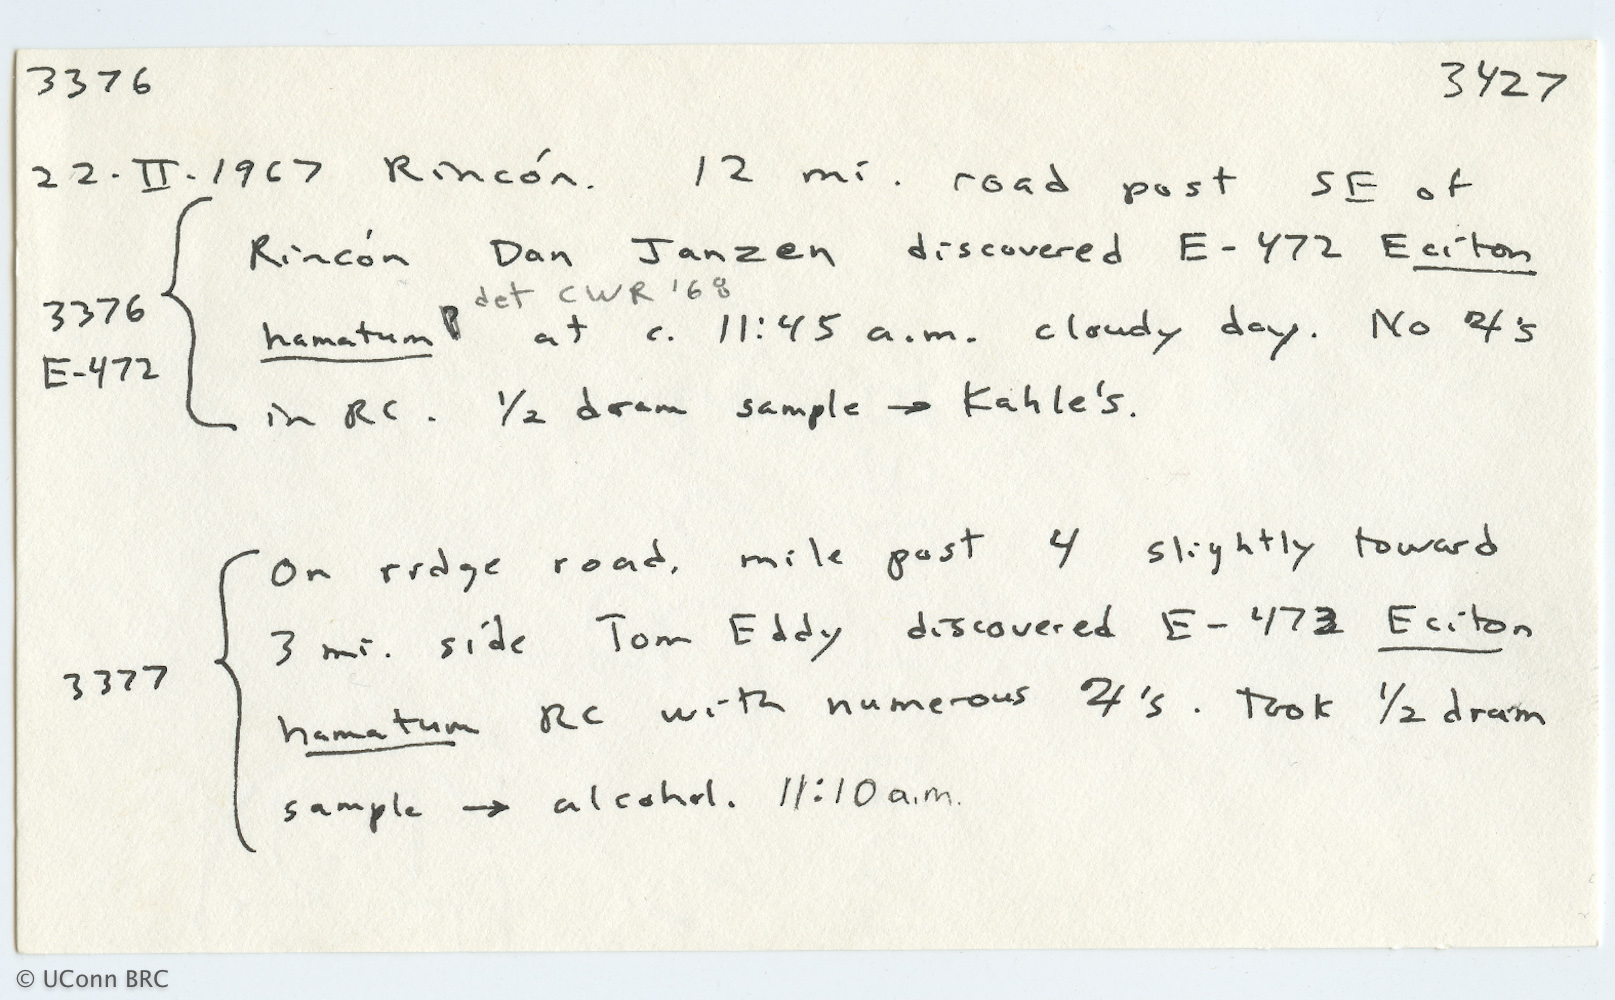 3376 3427
22·II·1967 Rincón. 12 mi. road post SE of
Rincón Dan Janzen discovered E-472 Eciton
det CWR '68
3376 hamatum at c. 11:45 a.m. cloudy day. No ♃'s
E-472
in RC. 1/2 dram sample → Kahle's.
On ridge road, mile post 4 slightly toward
3 mi. side Tom Eddy discovered E-473 Eciton
3377
hamatum RC with numerous ♃'s. Took 1/2 dram
sample → alcohol. 11:10 a.m.
© UConn BRC